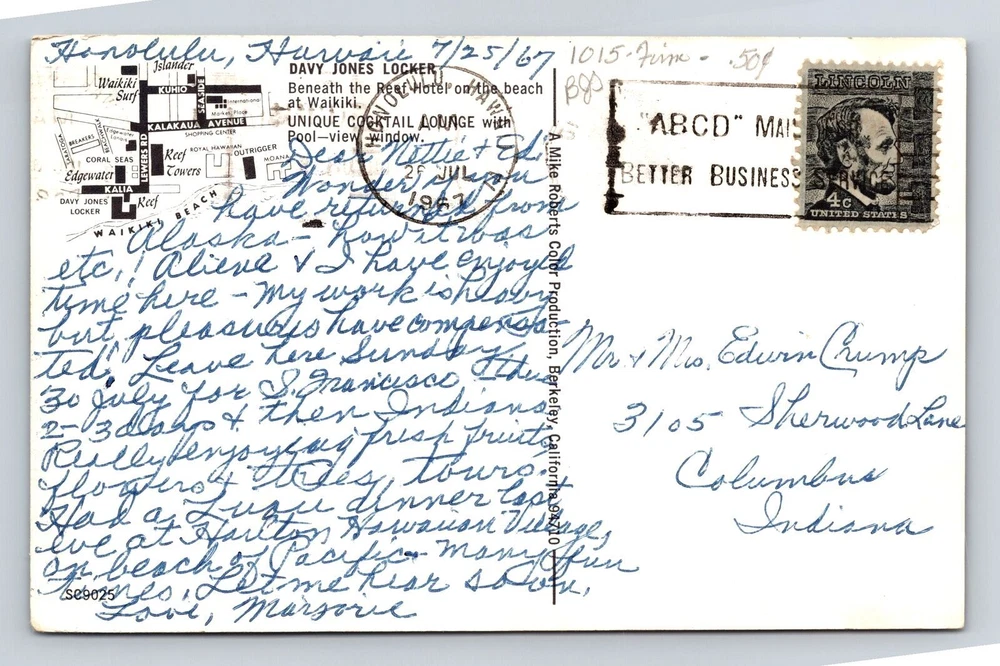 Honolulu, Hawaii 7/25/67
1015-Firm - .50¢
BJS
Islander
Waikiki
Surf
KUHIO
SEASIDE
International
Market Place
KALAKAUA AVENUE
SHOPPING CENTER
BREAKERS
SARATOGA
Edgewater
Lanais
LEWERS RD
CORAL SEAS
Reef
Towers
ROYAL HAWAIIAN
OUTRIGGER
MOANA
Edgewater
KALIA
DAVY JONES
LOCKER
Reef
WAIKIKI BEACH
DAVY JONES LOCKER
Beneath the Reef Hotel on the beach
at Waikiki.
UNIQUE COCKTAIL LOUNGE with
Pool-view window.
HONOLULU HAWAII
26 JUL
1967
"ABCD" MAIL
BETTER BUSINESS SERVICE
LINCOLN
4c
UNITED STATES
Dear Nettie & Ed:
Wonder if you
have returned from
Alaska - how it was
etc.! Aliene & I have enjoyed
time here - My work is heavy
but pleasures have compensa-
ted! Leave here Sunday
30 July for S. Francisco
2-3 days & then Indiana
Really enjoying fresh fruits,
flowers & trees, tours.
Had a Luau dinner last
eve at Hailton Hawaiian Village,
on beach of Pacific - Many fun
times. Let me hear soon.
Love, Marjorie
SC9025
A Mike Roberts Color Production, Berkeley, California 94710
Mr & Mrs. Edwin Crump
3105 Sherwood Lane
Columbus
Indiana